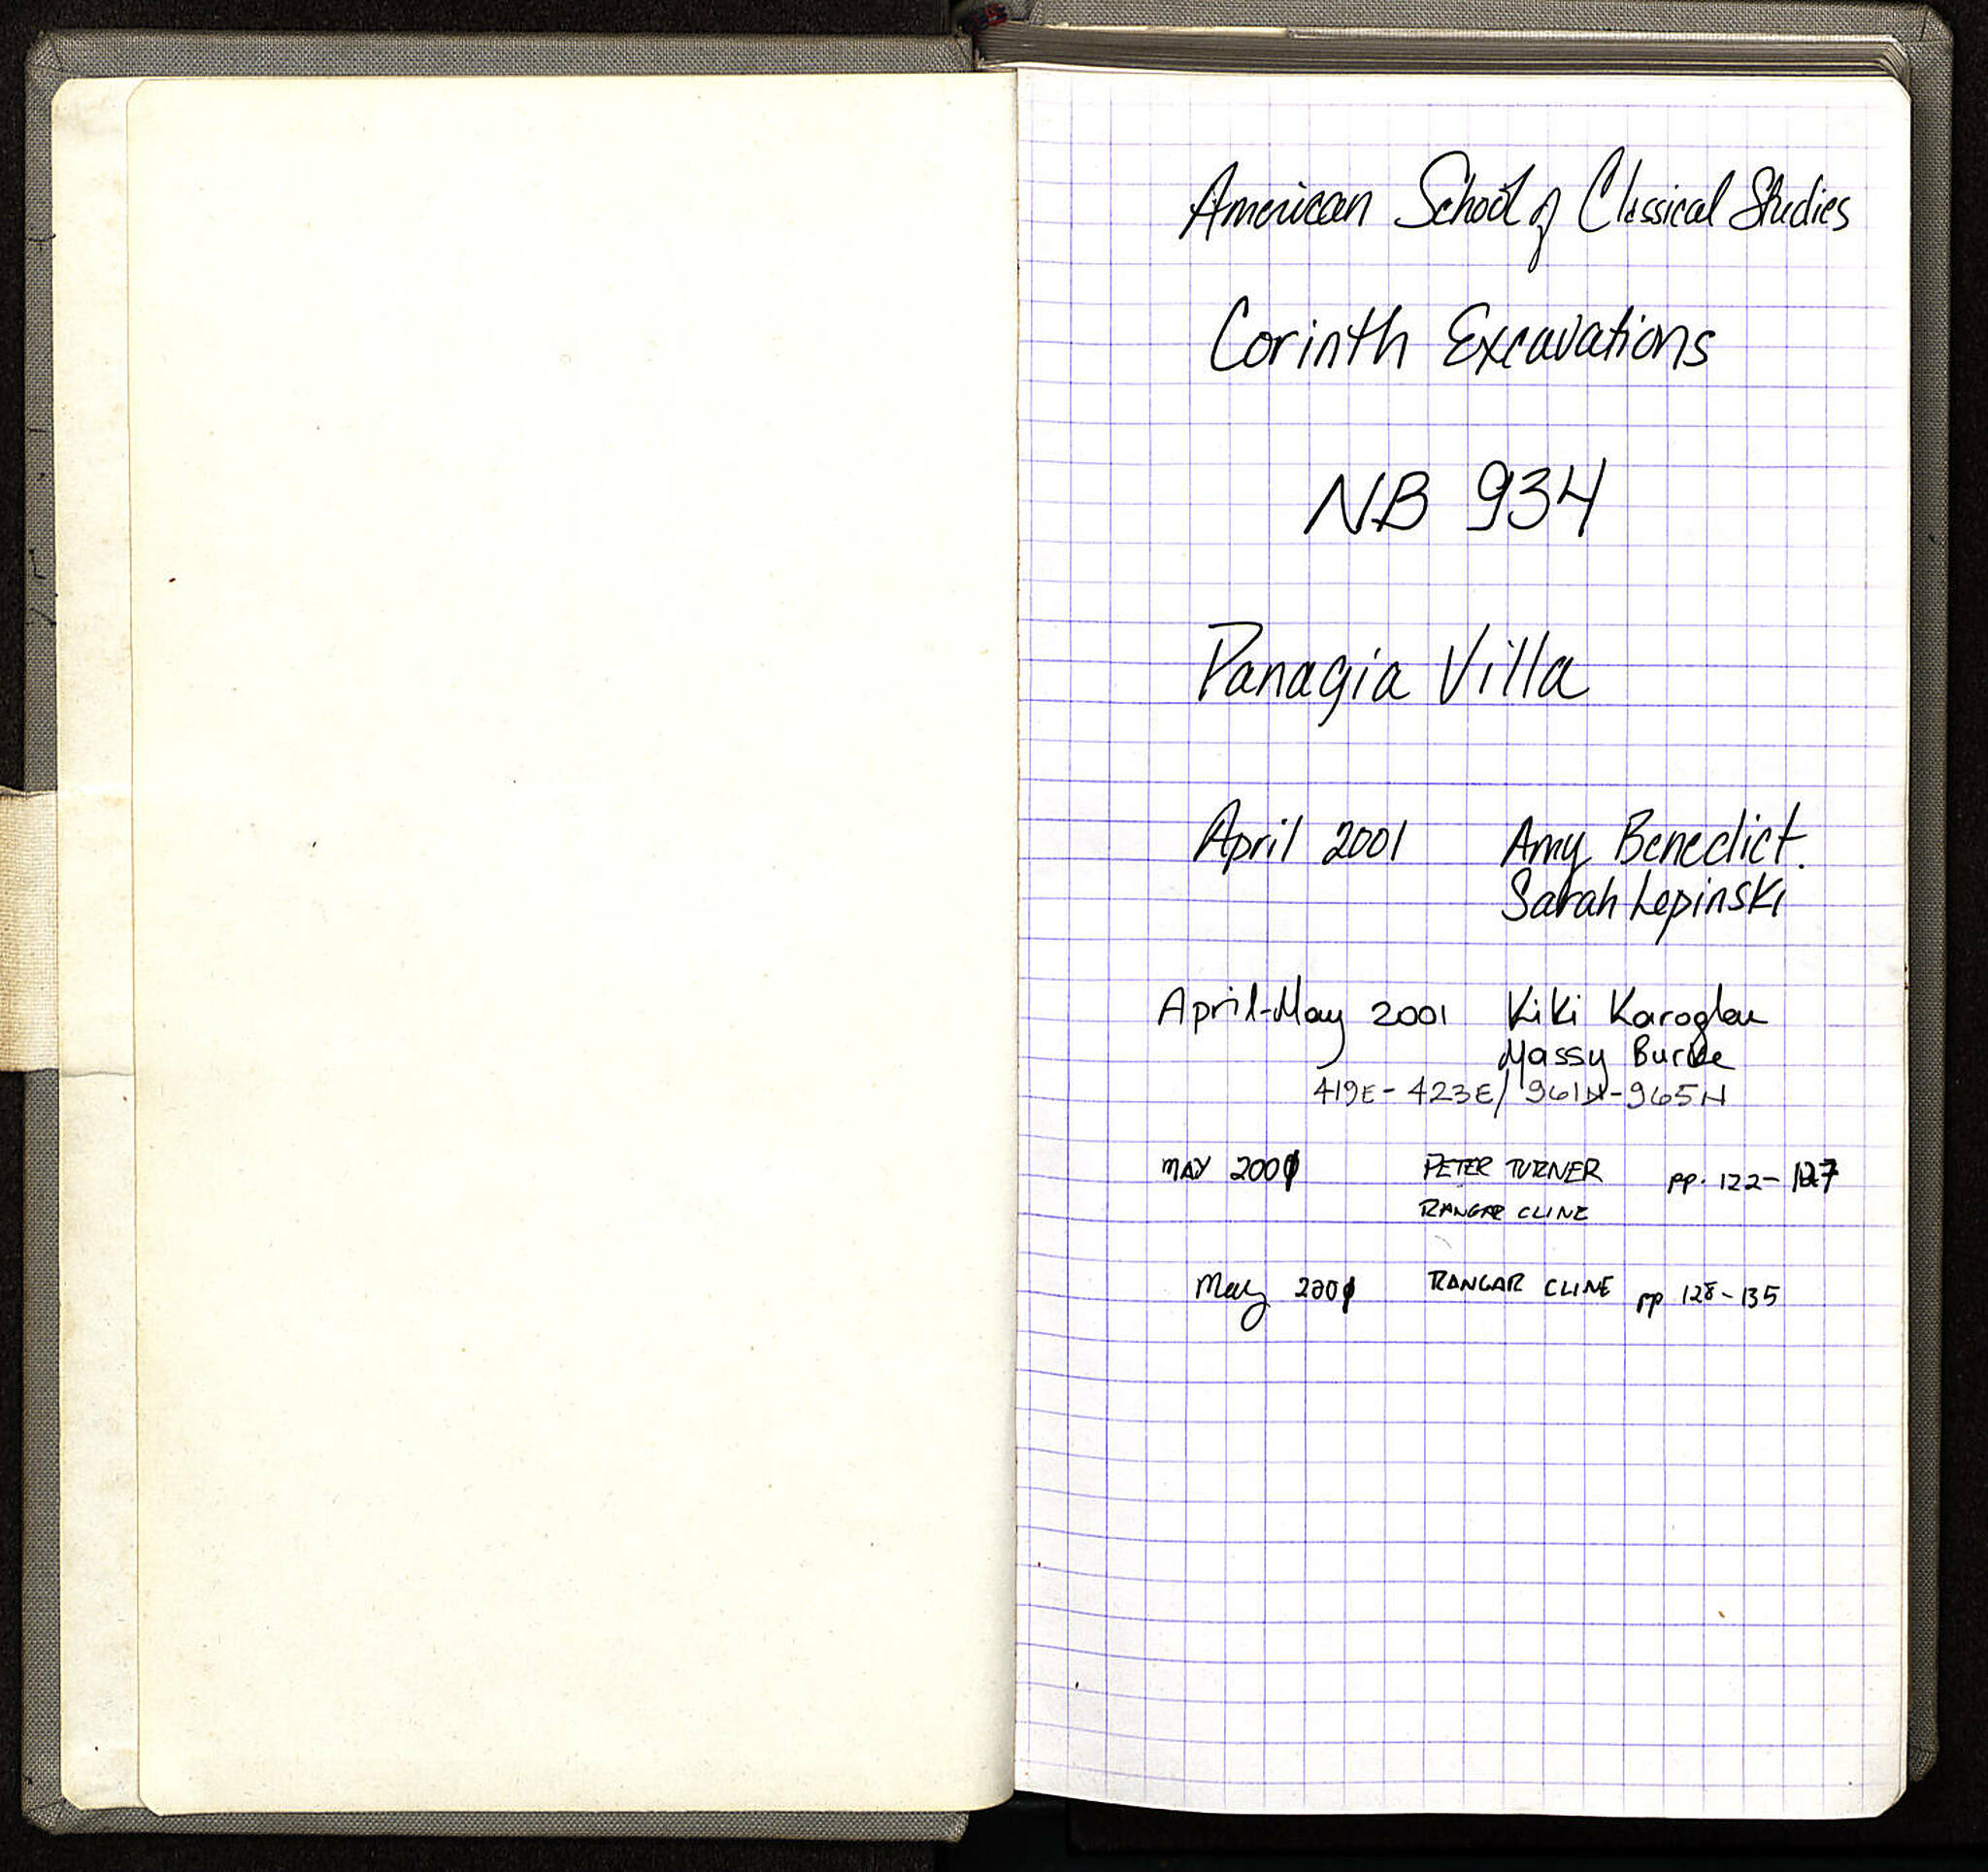 American School of Classical Studies
Corinth Excavations
NB 934
Panagia Villa
April 2001 Amy Benedict.
Sarah Lepinski
April-May 2001 Kiki Karoglou
Massy Burke
419E - 423E / 961N-965N
MAY 2001 PETER TURNER pp. 122-127
RANGAR CLINE
May 2001 RANGAR CLINE pp 128-135